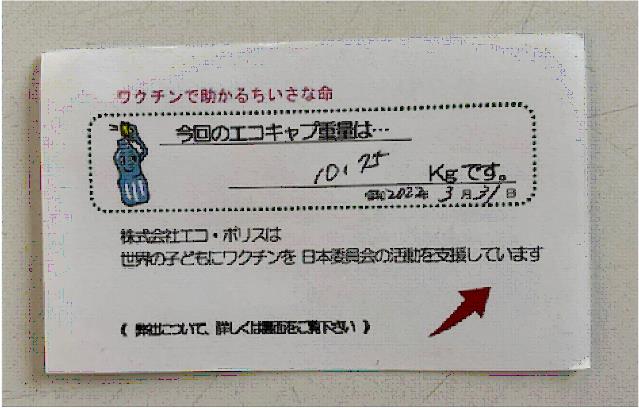 ワクチンで助かるちいさな命
今回のエコキャプ重量は…
10.75 Kgです。
2022年 3月31日
株式会社エコ・ポリスは
世界の子どもにワクチンを 日本委員会の活動を支援しています
( 弊社について、詳しくは裏面をご覧下さい )